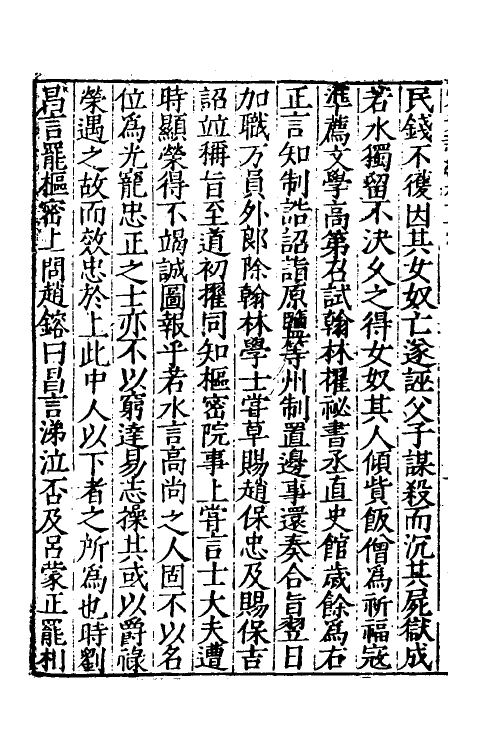 民錢不獲因其女奴亡遂誣父子謀殺而沉其屍獄成
若水獨留不決久之得女奴其人傾貲飯僧爲祈福寇
準薦文學高第召試翰林擢祕書丞直史館歲餘為右
正言知制誥詔詣原鹽等州制置邊事還奏合旨翌日
加職方員外郎除翰林學士嘗草賜趙保忠及賜保吉
詔竝稱旨至道初擢同知樞密院事上嘗言士大夫遭
時顯榮得不竭誠圖報乎若水言高尚之人固不以名
位為光寵忠正之士亦不以窮達易志操其或以爵祿
榮遇之故而效忠於上此中人以下者之所為也時劉
昌言罷樞密上問趙鎔曰昌言涕泣否及呂蒙正罷相